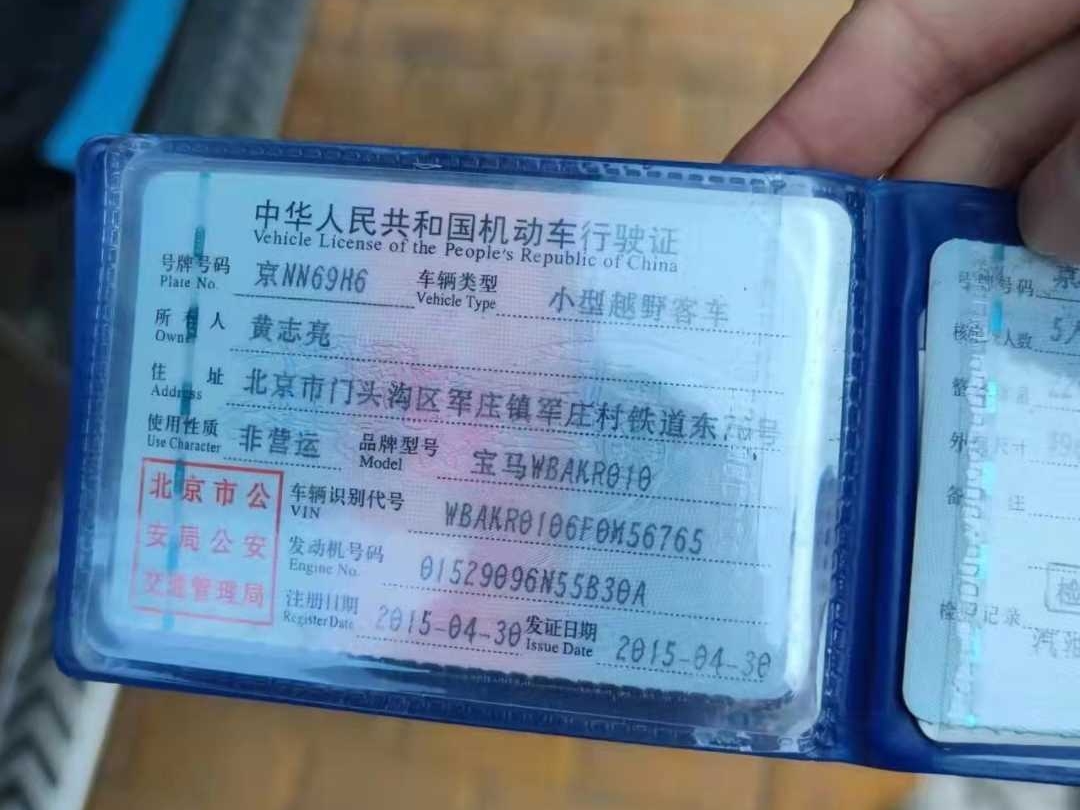 中华人民共和国机动车行驶证
Vehicle License of the People's Republic of China
号牌号码 京NN69H6 车辆类型 小型越野客车
Plate No. Vehicle Type
所有人 黄志亮
Owner
住址 北京市门头沟区军庄镇军庄村铁道东 号
Address
使用性质 非营运 品牌型号 宝马WBAKR010
Use Character Model
北京市公
安局公安
交通管理局
车辆识别代号 WBAKR0106F0M56765
VIN
发动机号码 01529096N55B30A
Engine No.
注册日期 2015-04-30 发证日期 2015-04-30
Register Date Issue Date
号牌号码 京
人数 5
寸
注
检
记录
汽